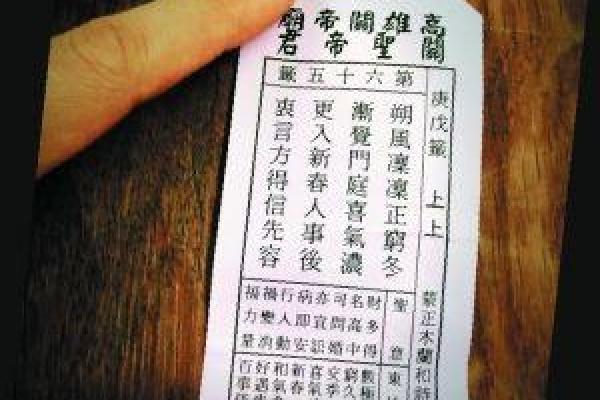 高雄關帝廟
關聖帝君
第六十五籤
庚戊籤 上上
朔風凜凜正窮冬
漸覺門庭喜氣濃
更入新春人事後
衷言方得信先容
聖意
財多得
名高中
可問婚
亦宜訟
病即安
行人動
禍變消
福力量
東
數極
窮久
喜氣
新春
和氣
好遇
百事